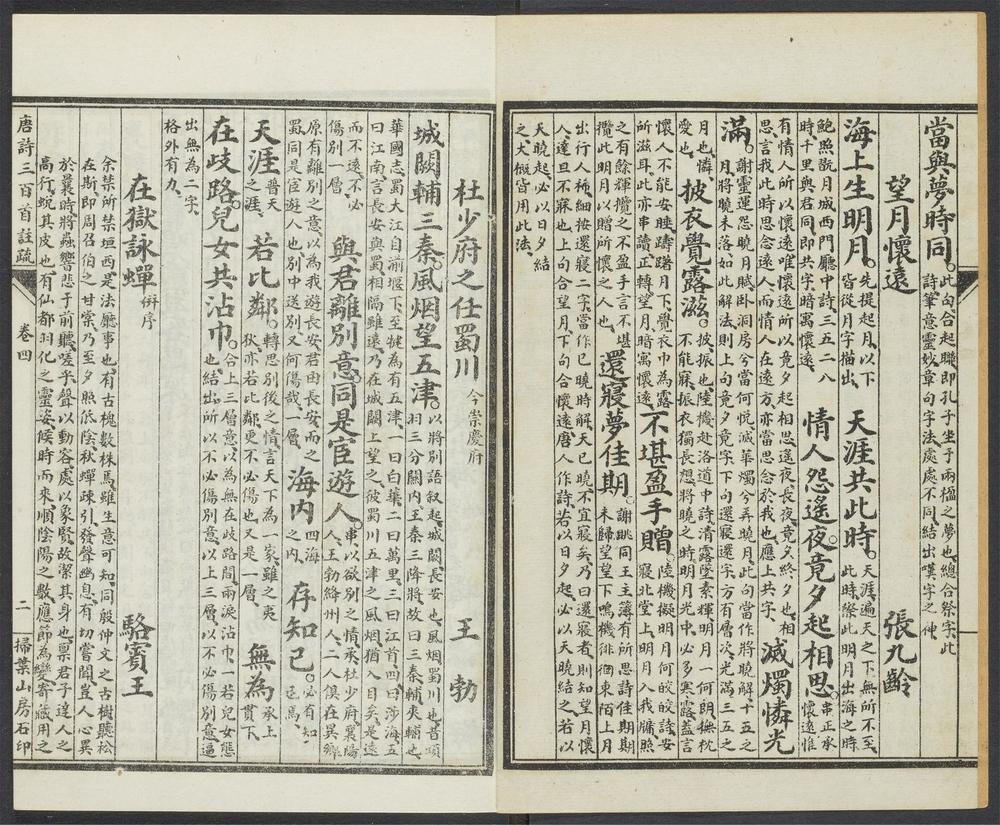 當與夢時同。此句合起聯、即孔子坐于兩楹之夢也、總合祭字、此
詩筆意靈妙、章句字法、處處不同、結出嘆字之神、
望月懷遠 張九齡
海上生明月。先提起月、以下
皆從月字描出、
天涯共此時。天涯、遍天之下、無所不至、
此時、際此明月出海之時、
鮑照翫月城西門廳中詩、三五二八
時、千里與君同、即共字暗含懷遠、
情人怨遙夜。竟夕起相思。串正承
懷遠、惟
有情人所以懷遠、唯懷遠所以竟夕起相思、遙夜、長夜、竟夕、終夕也、相
思、言我此時思念遠人、而情人在遠方、亦當思念於我也、應上共字、
滅燭憐光
滿。謝靈運怨曉月賦、臥洞房兮當何悅、滅華燭兮弄曉月、此句當作將曉解、十五之
月、將曉未落、如此解法、則上句竟夕竟字、下句還寢還字、方有層次、光滿三五之
月也、憐
愛也、
披衣覺露滋。披、振也、陸機赴洛道中詩、清露墜素輝、明月一何朗、撫枕
不能寐、振衣獨長想、將曉之時、明月光中、必多寒露、蓋言
懷人不能安睡、躊躇月下、覺衣巾為露
所滋耳、此亦串讀、正轉望月、暗寓懷遠、
不堪盈手贈。陸機擬明月何皎皎詩、安
寢北堂上、明月入我牖、照
之有餘輝、攬之不盈手、言不堪
攬此明月以贈所懷之人也、
還寢夢佳期。謝朓同王主簿有所思詩、佳期期
未歸、望望下鳴機、徘徊東陌上、月
出行人稀、細按還寢二字、當作已曉時解、天已曉、不宜寢矣、乃曰必以還寢者、則知望月懷
人、達旦不寐也、上句合望月、下句合懷遠、唐人作詩、若以日夕起、必以天曉結之、若以
天曉起、必以日夕結
之、大概皆用此法、
杜少府之任蜀川今崇慶府 王勃
城闕輔三秦。風烟望五津。以將別語叙起、城闕、長安也、風烟、蜀川也、昔項
羽三分關內王秦三降將、故曰三秦、輔、夾輔也、
華國志、蜀大江自湔堰下、至犍為有五津、一曰白華、二曰萬里、三曰江首、四曰涉海、五
曰江南、言長安與蜀相隔雖遠、乃在城闕上望之、彼蜀川五津之風烟、猶入目矣、是遠
而不遠、不必
傷別一層、
與君離別意。同是宦遊人。串、以欲別之情承、杜少府、襄陽
人、王勃、絳州人、二人俱在異鄉、
原有離別之意、以為我遊長安、君由長安而之
蜀、同是宦遊人也、別中送別、又何傷哉、一層、
海內四海
之內、
存知己。必有知
己焉、
天涯普天
之涯、
若比鄰。轉思別後之情、言天下為一家、雖之夷
狄、亦若比鄰、更不必傷也、又是一層、
無為承上
貫下、
在歧路。兒女共沾巾。合上三層意、以為無在歧路間、兩淚沾巾、一若兒女態
也、結出所以不必傷別意、以上三層、以不必傷別意逼
出無為二字、
格外有力、
在獄詠蟬併序 駱賓王
余禁所禁垣西、是法廳事也、有古槐數株焉、雖生意可知、同殷仲文之古樹、聽訟
在斯、即周召伯之甘棠、乃至夕照低陰、秋蟬疎引、發聲幽息、有切嘗聞、豈人心異
於曩時、將蟲響悲于前聽、嗟乎、聲以動容、處以象賢、故潔其身也、稟君子達人之
高行、蛻其皮也、有仙都羽化之靈姿、候時而來、順陰陽之數、應節為變、寄藏用之
唐詩三百首註疏 卷四 二 掃葉山房石印